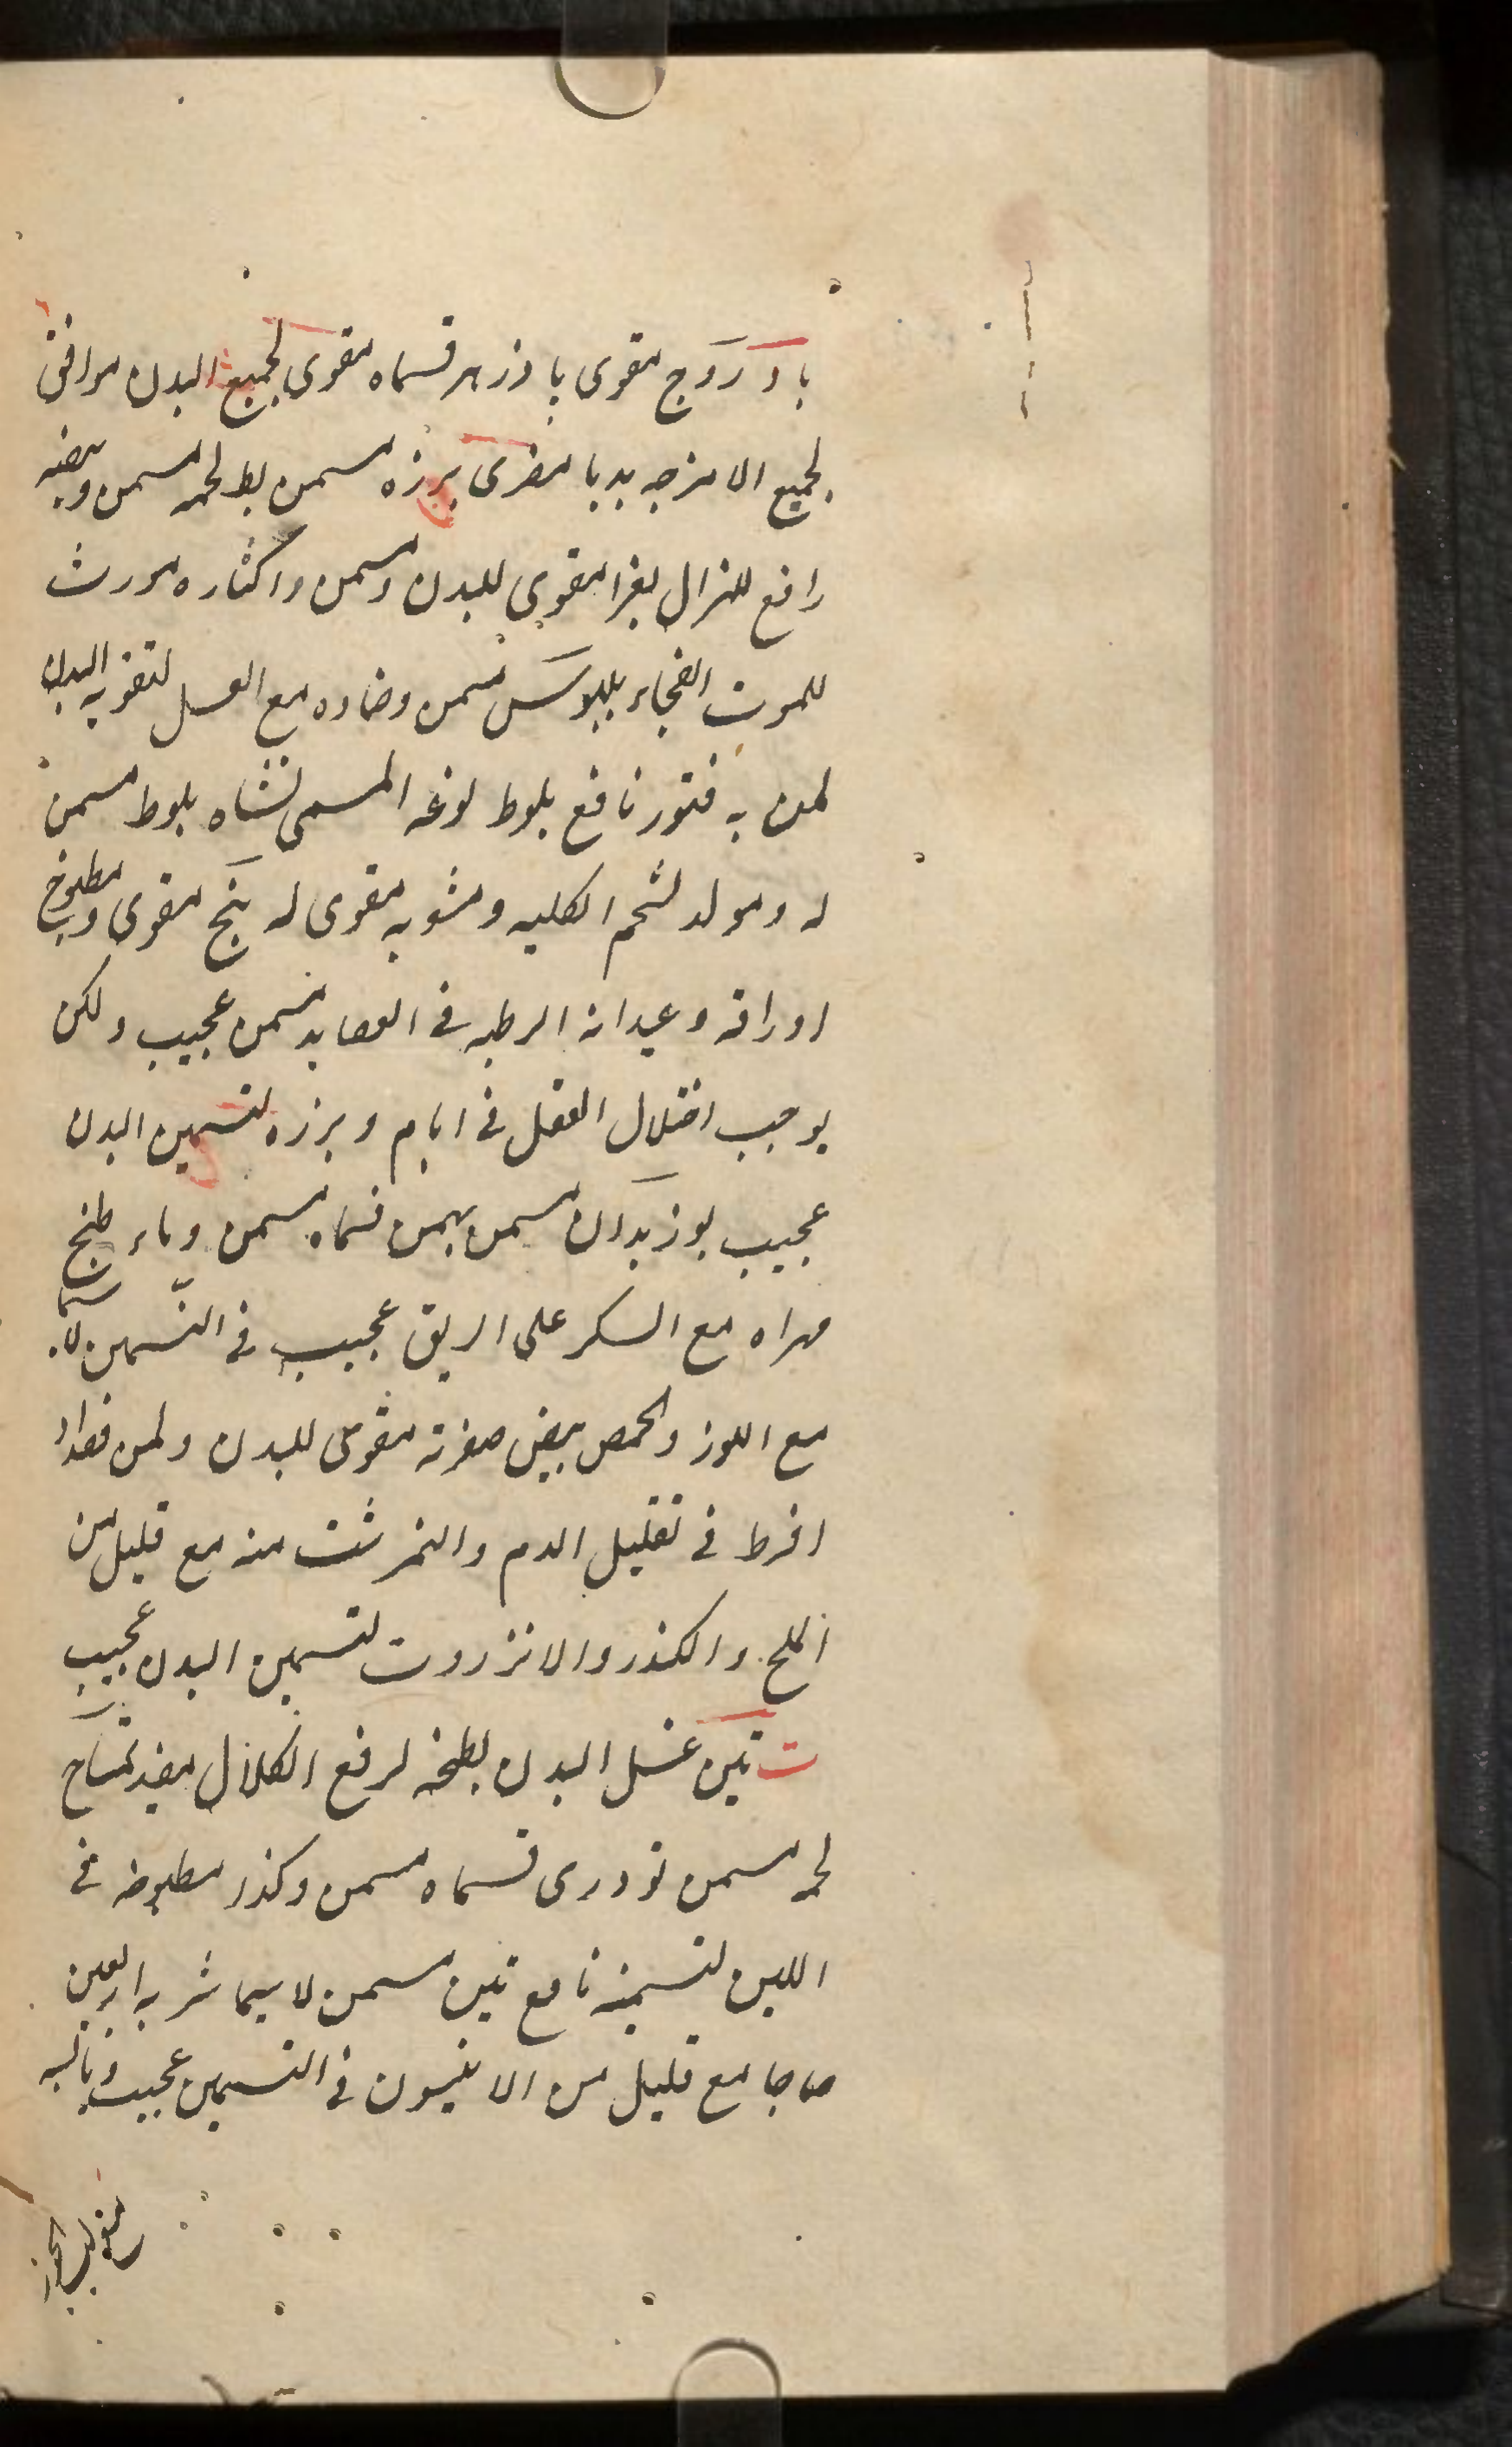 بادروج مقوى بادزهر قسماه مقوى لجميع البدن موافق
لجميع الامزجه بدبا مغرى برزه مسمن بط لحمه مسمن وبيضه
رافع للهزال بغرا مقوى للبدن ومسمن واكثاره مورث
للموت الفجاء بلبوس مسمن وضماده مع العسل لتقويه البدن
لمن به فتور نافع بلوط نوعه المسمى بشاه بلوط مسمن
له ومولد لشحم الكليه ومشويه مقوى له بنج مقوى ومطبوخ
اوراقه وعيدانه الرطبه فى العصايد مسمن عجيب ولكن
يوجب اختلال العقل فى ايام وبرزه لتسمين البدن
عجيب بوزيدان مسمن بهمن قسماه مسمن وماء طبخ
مهراه مع السكر على الريق عجيب فى التّسمين لا سيما
مع اللوز والحمص بيض صفرته مقوى للبدن ولمن
افرط فى تقليل الدم والنمرشت منه مع قليل من
الملح والكندر والانزروت لتسمين البدن عجيب
ت تين غسل البدن بطبخه لرفع الكلال مفيد تمساح
لحمه مسمن تودرى قسماه مسمن وكذر مطبوخه فى
اللبن لتسمينه نافع تين مسمن لا سيما شربه اربعين
صباحا مع قليل من الانيسون فى التسمين عجيب ويابسه